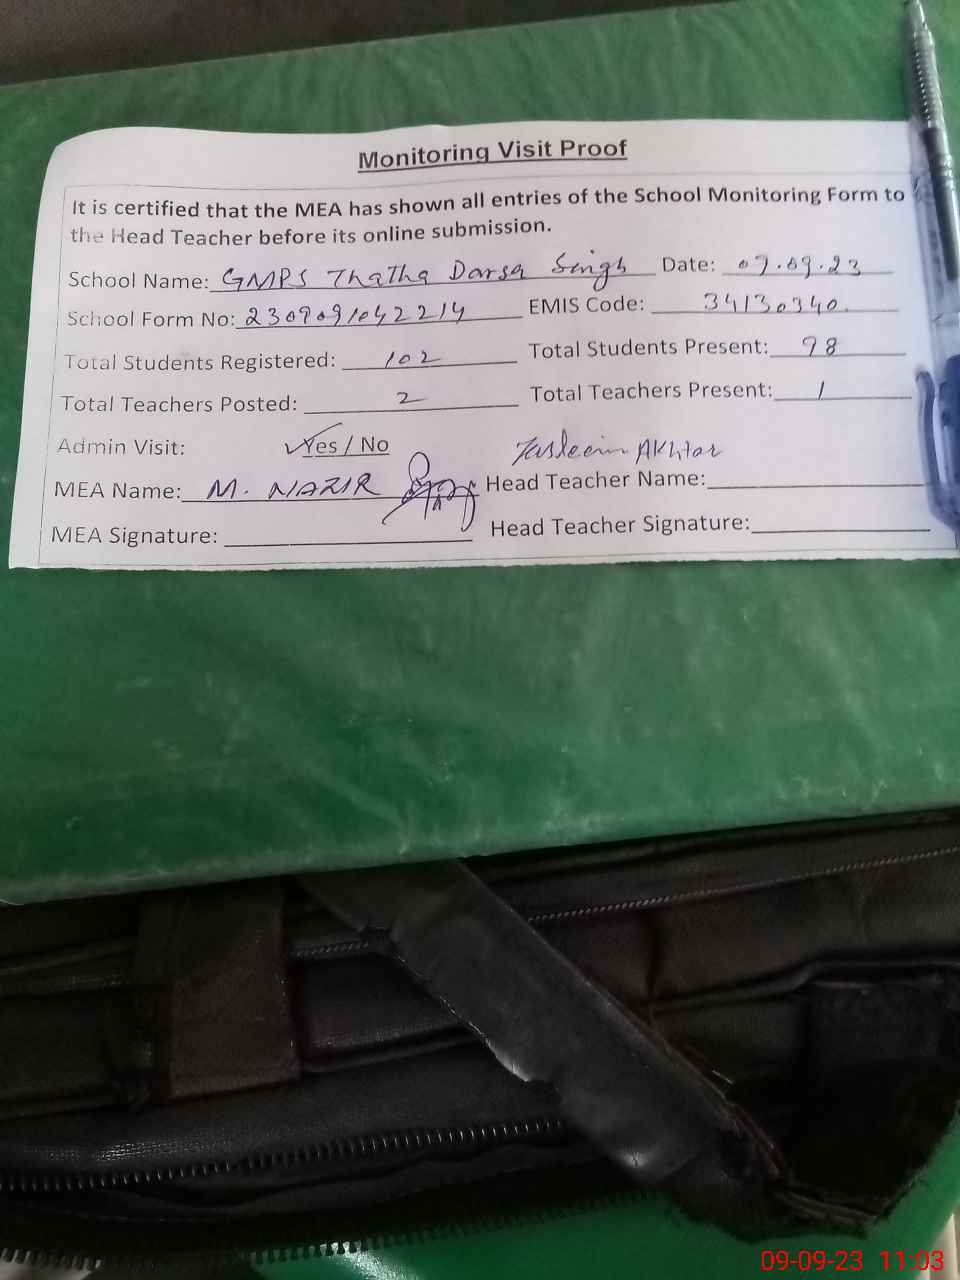 Monitoring Visit Proof
It is certified that the MEA has shown all entries of the School Monitoring Form to
the Head Teacher before its online submission.
School Name: GMPS ThaTha Darsa Singh Date: 09.09.23
School Form No: 23090910422 14 EMIS Code: 34130340.
Total Students Registered: 102 Total Students Present: 98
Total Teachers Posted: 2 Total Teachers Present: 1
Admin Visit: Yes / No Tasleem Akhtar
MEA Name: M. NAZIR Head Teacher Name:
MEA Signature: Head Teacher Signature:
09-09-23 11:03